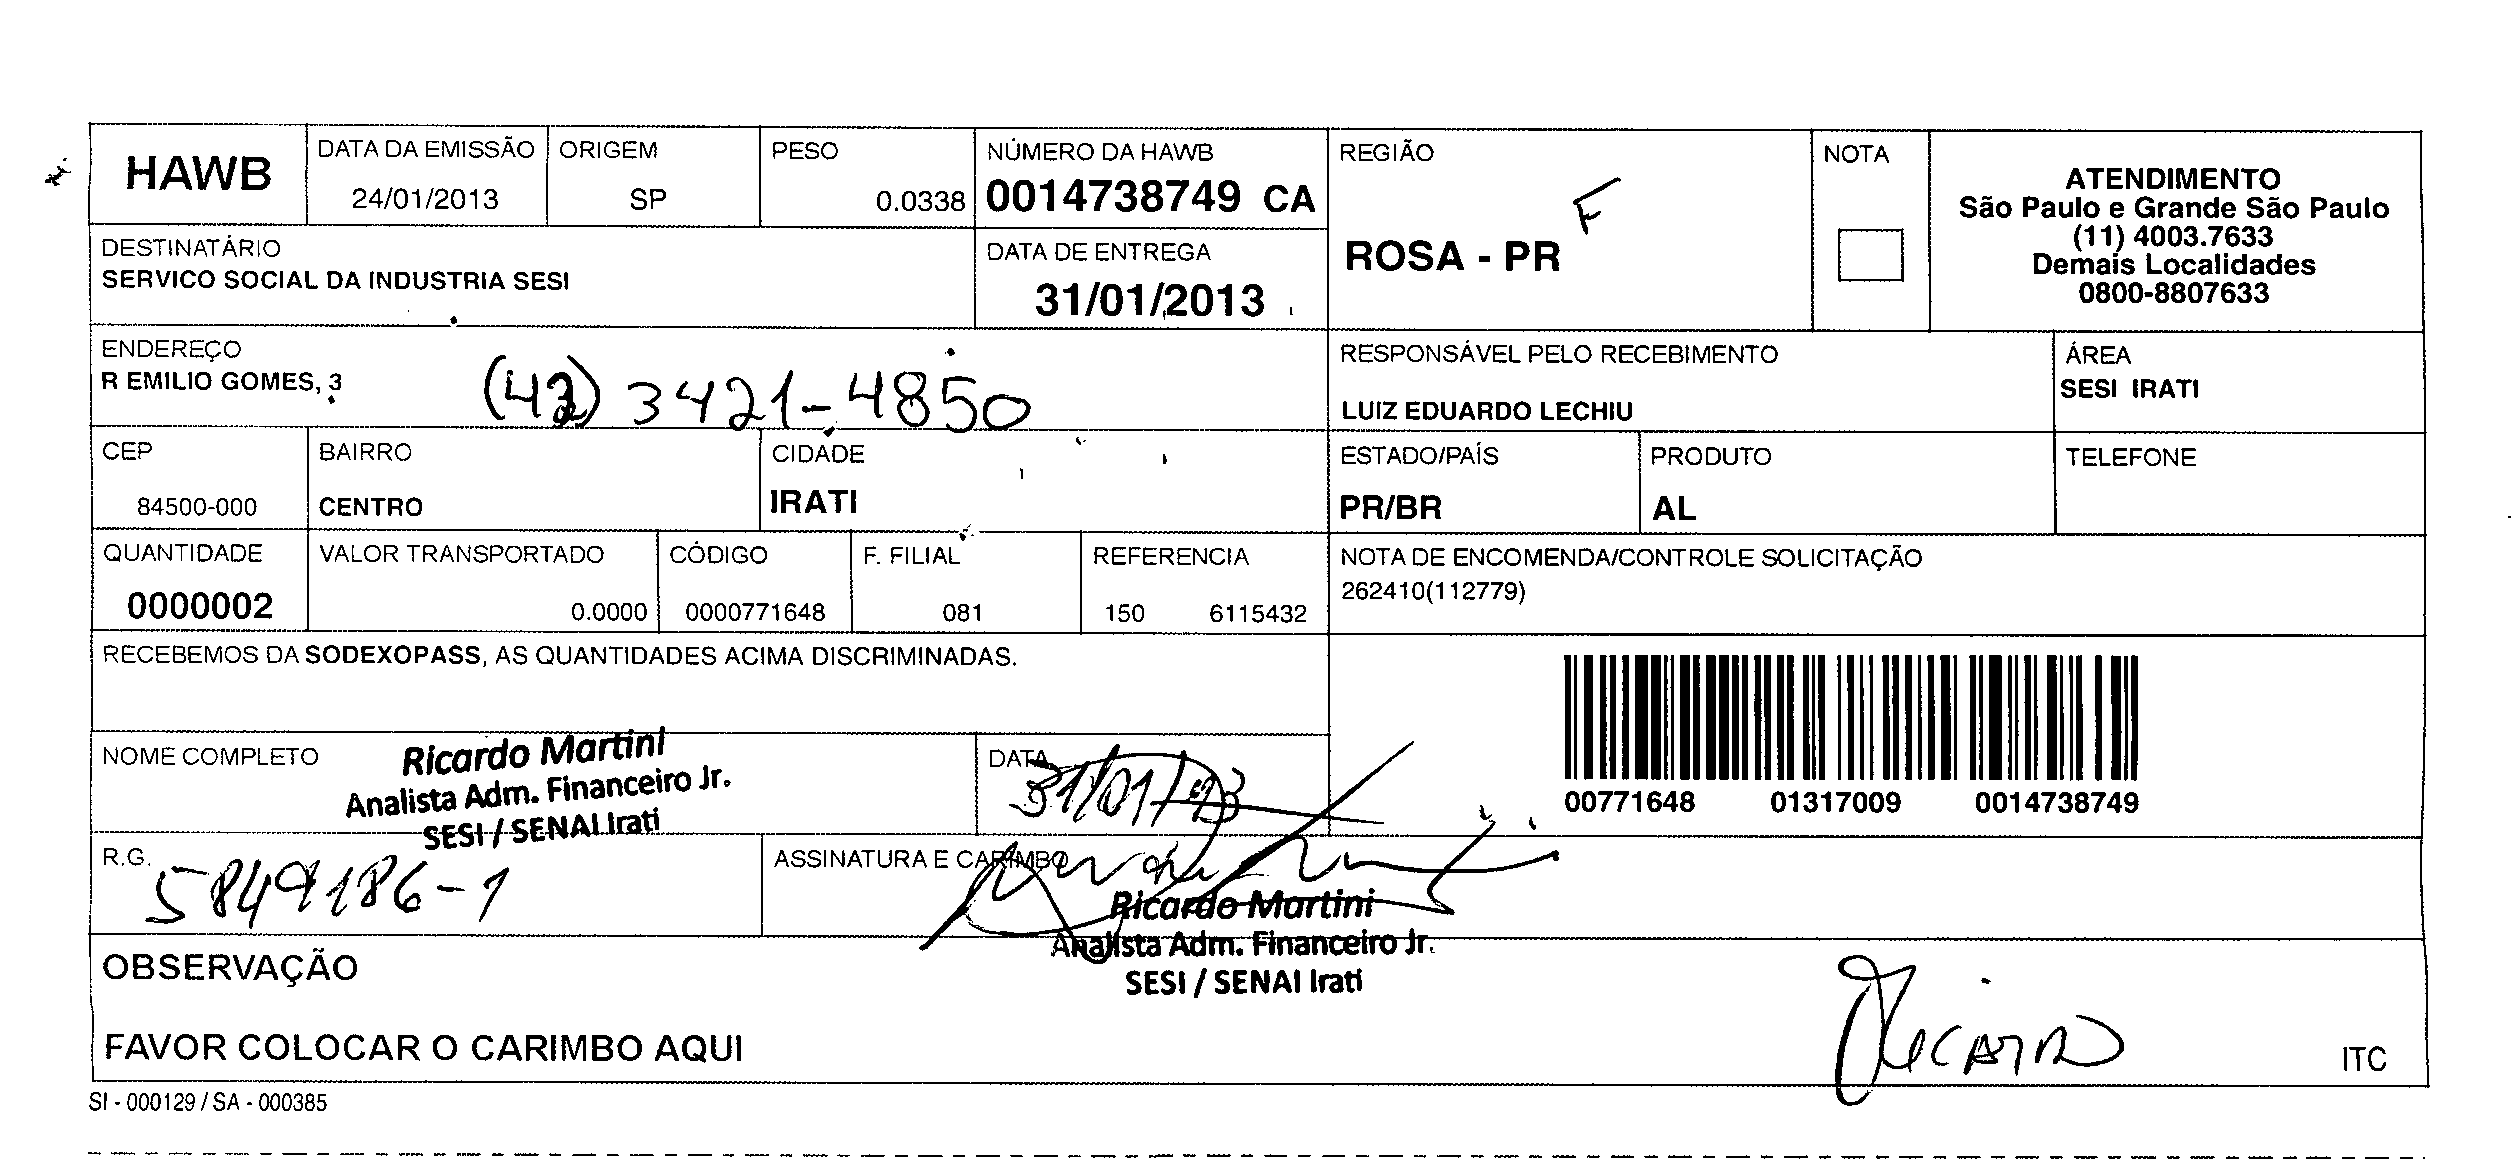 HAWB
DATA DA EMISSÃO
24/01/2013
ORIGEM
SP
PESO
0.0338
NÚMERO DA HAWB
0014738749 CA
REGIÃO
F
ROSA - PR
NOTA
ATENDIMENTO
São Paulo e Grande São Paulo
(11) 4003.7633
Demais Localidades
0800-8807633
DESTINATÁRIO
SERVICO SOCIAL DA INDUSTRIA SESI
DATA DE ENTREGA
31/01/2013
ENDEREÇO
R EMILIO GOMES, 3
(42) 3421-4850
RESPONSÁVEL PELO RECEBIMENTO
LUIZ EDUARDO LECHIU
ÁREA
SESI IRATI
CEP
84500-000
BAIRRO
CENTRO
CIDADE
IRATI
ESTADO/PAÍS
PR/BR
PRODUTO
AL
TELEFONE
QUANTIDADE
0000002
VALOR TRANSPORTADO
0.0000
CÓDIGO
0000771648
F. FILIAL
081
REFERENCIA
150 6115432
NOTA DE ENCOMENDA/CONTROLE SOLICITAÇÃO
262410(112779)
RECEBEMOS DA SODEXOPASS, AS QUANTIDADES ACIMA DISCRIMINADAS.
00771648 01317009 0014738749
NOME COMPLETO
Ricardo Martini
Analista Adm. Financeiro Jr.
SESI / SENAI Irati
DATA
31/01/13
R.G.
5849186-1
ASSINATURA E CARIMBO
Ricardo Martini
Analista Adm. Financeiro Jr.
SESI / SENAI Irati
OBSERVAÇÃO
FAVOR COLOCAR O CARIMBO AQUI
ITC
SI - 000129 / SA - 000385